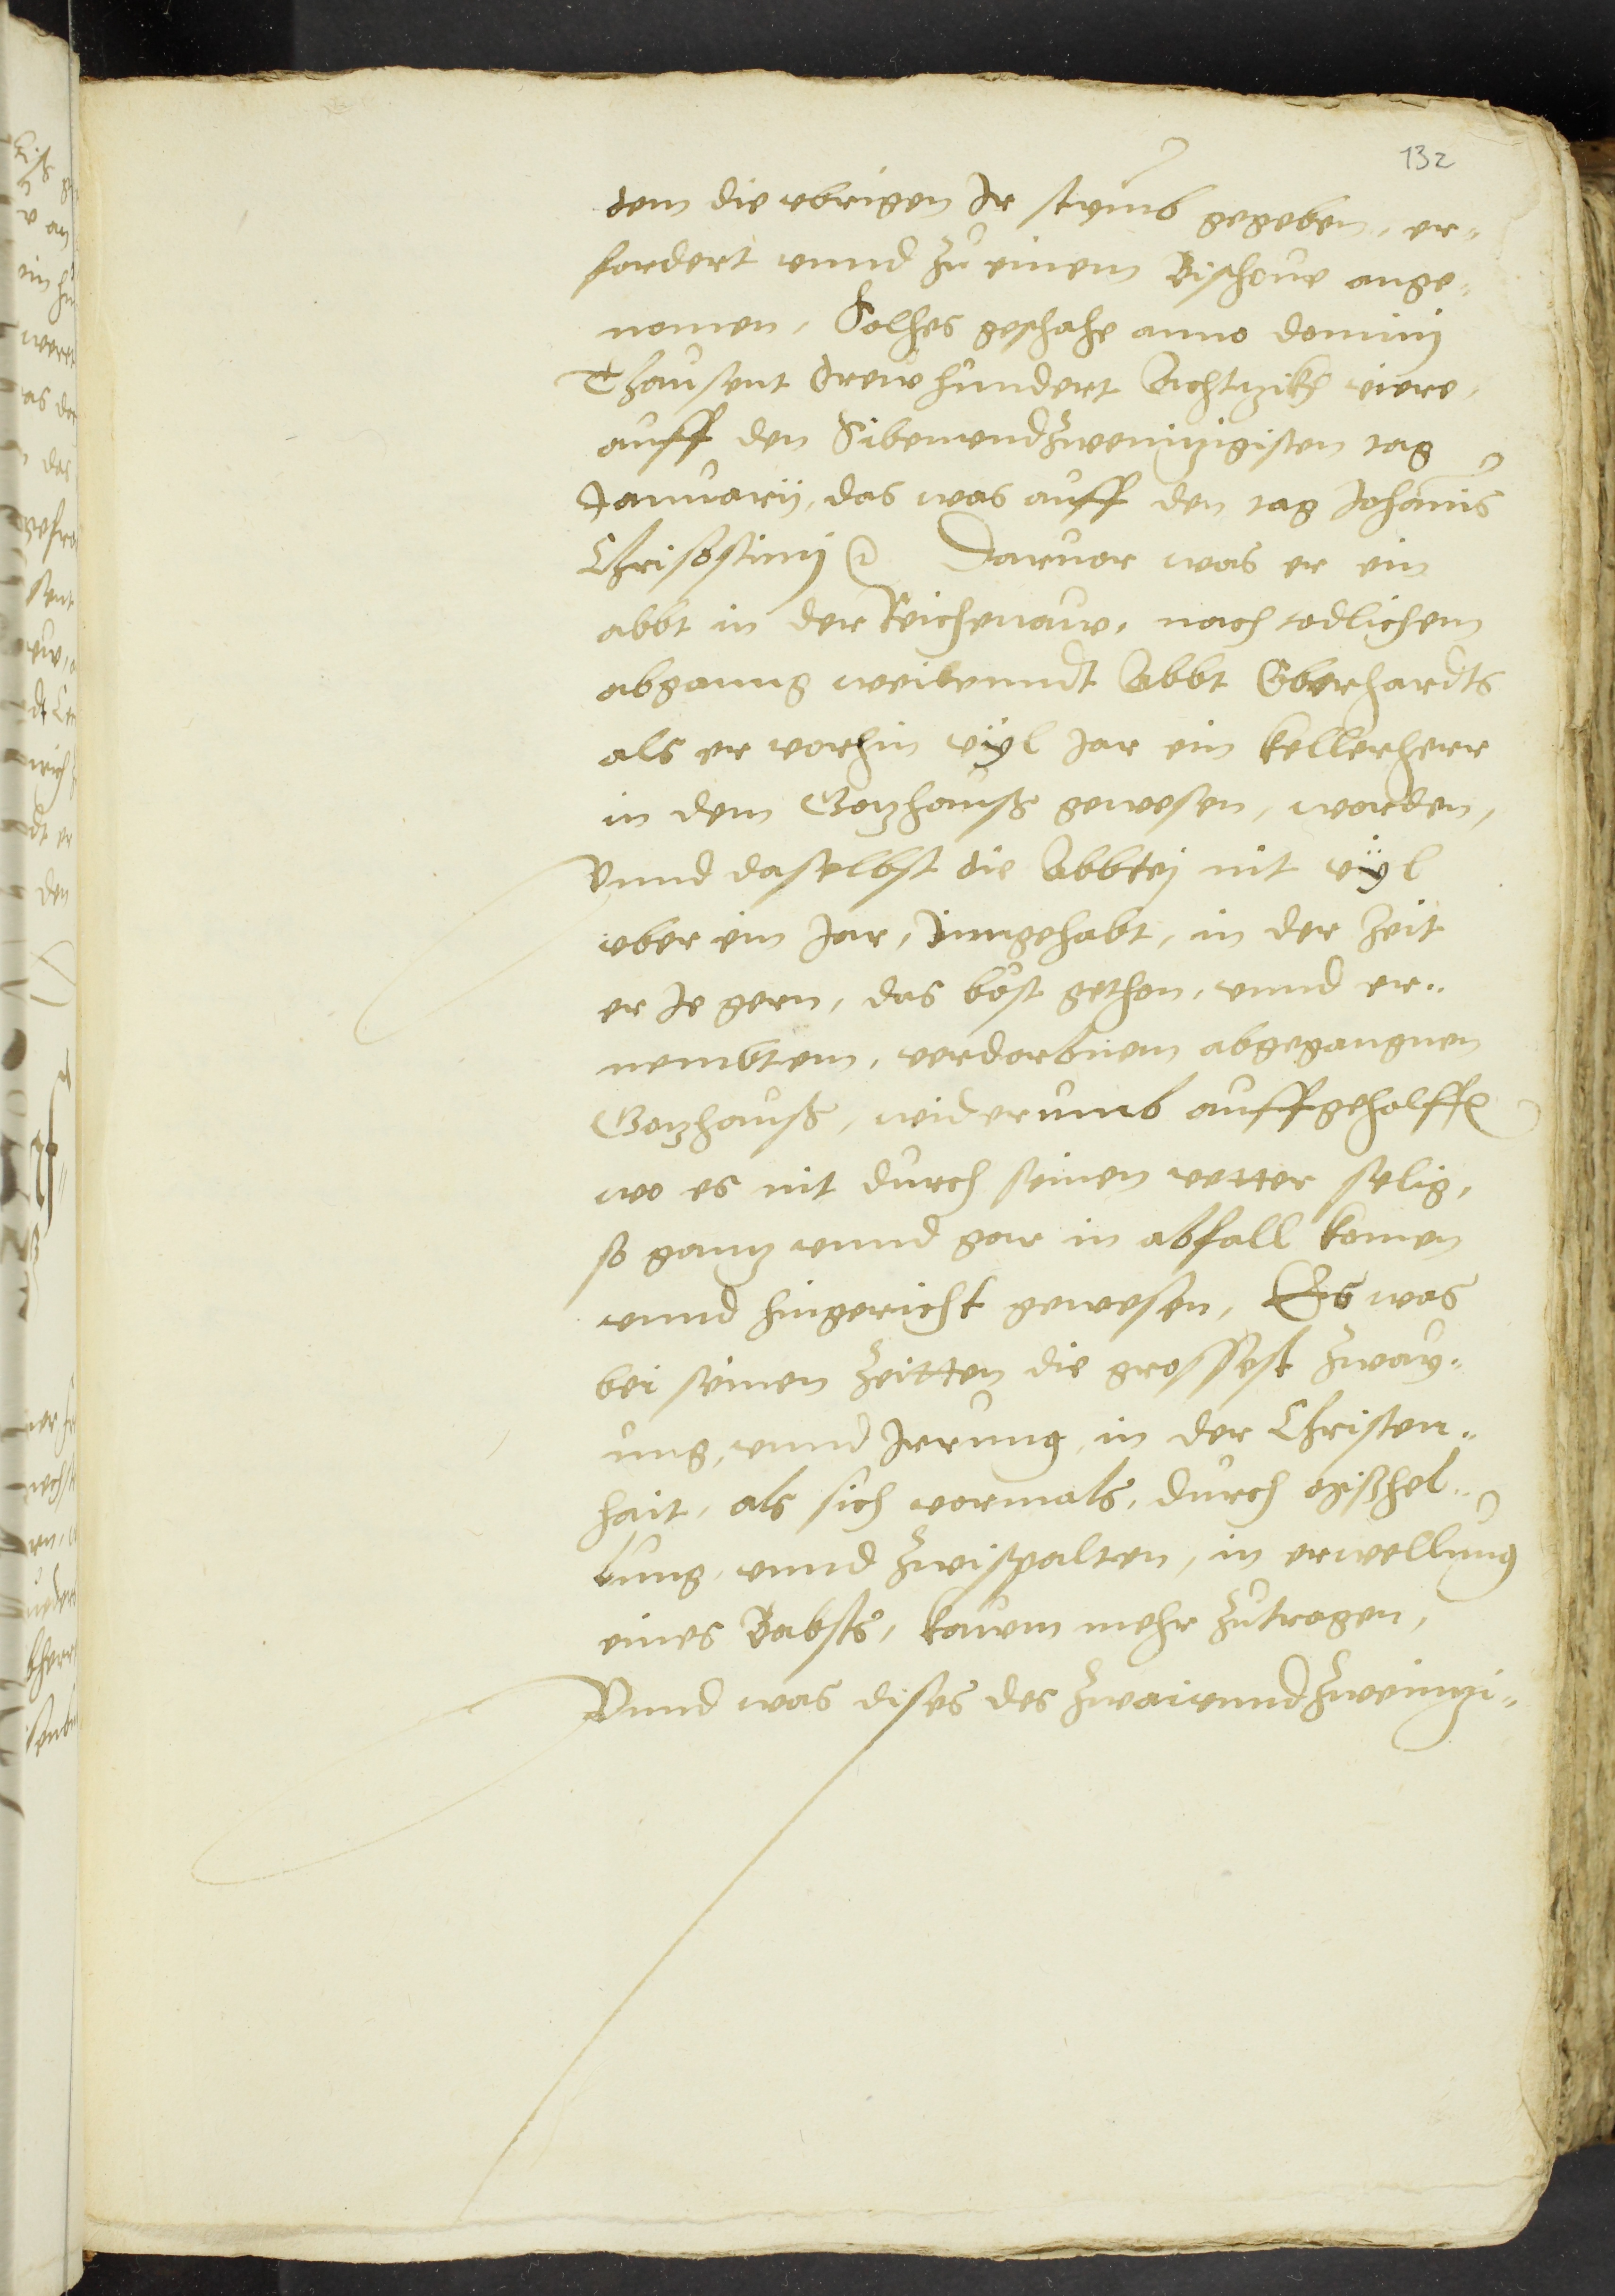 132
dem die vbrigen Ir stymb gegeben, er-
fordert vnnd zu einem Bischoue ange-
nomen, Solhes geschahe anno dominj
Thausent drewhundert Achtzikh viere,
auff den Sibenvndzweintzigisten tag
Januarij, das was auff den tag Johannis
Chrisostimj Daruor was er ein
abbt in der Reichenauw, nach todlichem
abganng weilenndt Abbt Eberhardts
als er vorhin vÿl Jar ein kellerherr
in dem Gotzhauß gewesen, worden,
Vnnd daselbst die Abbtej nit vÿl
vber ein Jar, Inngehabt, in der Zeit
er Je gern, das böst gethon, vnnd er-
nembtem, verdorbnem abgegangnen
Gotzhauß, widerumb auffgeholffen
wo es nit durch seinen vetter selig,
so gantz vnnd gar in abfall komen
vnnd hingericht gewesen, Es was
bei seinen Zeitten die grossest Zway-
ung, vnnd Irrung, in der Christen-
hait, als sich vormals, durch mißhel-
lung, vnnd Zwispalten, in erwellung
eines Babsts, kaum mehr Zutragen,
Vnnd was dises des ZwaivnndZweintzi-